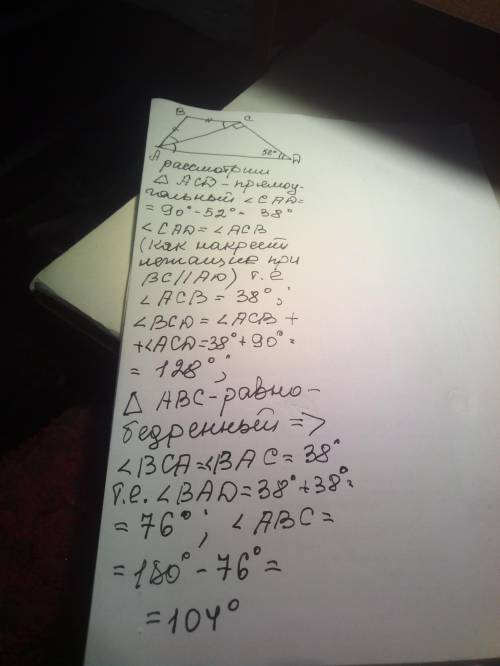 B
C
A
52°
D
рассмотрим
△ ACD - прямоу-
гольный ∠CAD =
= 90° - 52° = 38°
∠CAD = ∠ACB
(как накрест
лежащие при
BC || AD) т.е
∠ACB = 38°;
∠BCD = ∠ACB +
+∠ACD = 38° + 90° =
= 128°;
△ ABC - равно-
бедренный =>
∠BCA = ∠BAC = 38°
т.е. ∠BAD = 38° + 38° =
= 76°; ∠ABC =
= 180° - 76° =
= 104°